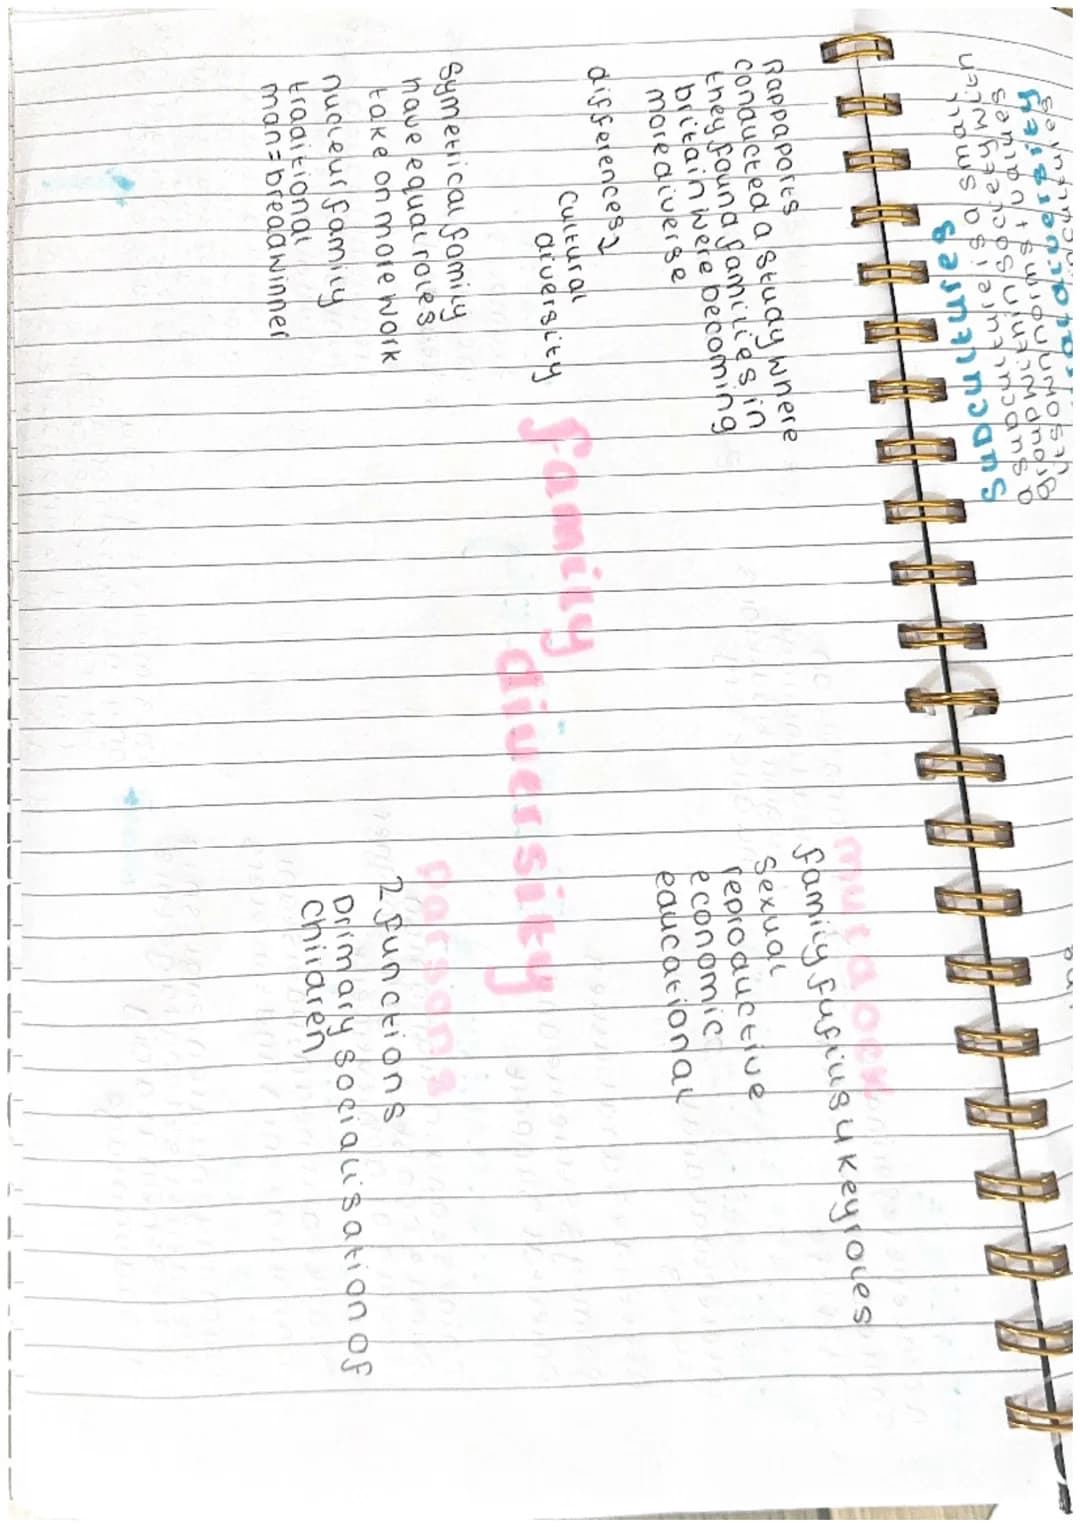 Subcultures
a subculture is a small
group within society with
its own norms + values
Rapaports
conducted a study where
they found families in
britain were becoming
more diverse
differences?
cultural
diversity
symetrical family
have equal roles
take on more work
nucleur family
traditional
man = breadwinner
family diversity
mutdock
family fufius 4 key roles
sexual
reproductive
economic
educational
parsons
2 functions
primary socialisation of
children